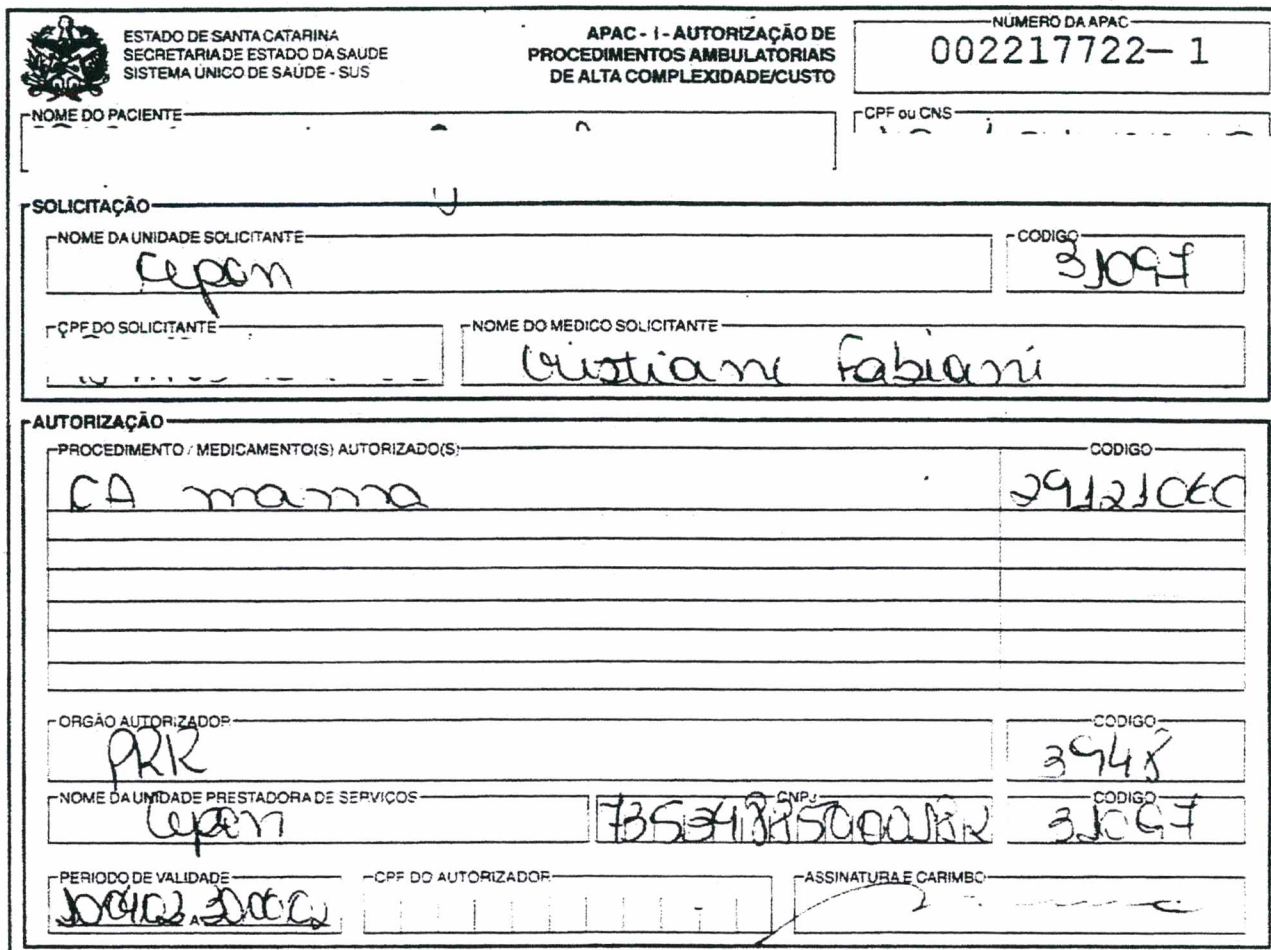 ESTADO DE SANTA CATARINA
SECRETARIA DE ESTADO DA SAUDE
SISTEMA ÚNICO DE SAÚDE - SUS
APAC - I - AUTORIZAÇÃO DE
PROCEDIMENTOS AMBULATORIAIS
DE ALTA COMPLEXIDADE/CUSTO
NÚMERO DA APAC
002217722-1
NOME DO PACIENTE
CPF ou CNS
SOLICITAÇÃO
NOME DA UNIDADE SOLICITANTE
CODIGO
Cepon
31097
CPF DO SOLICITANTE
NOME DO MEDICO SOLICITANTE
Cristiane Fabiani
AUTORIZAÇÃO
PROCEDIMENTO / MEDICAMENTO(S) AUTORIZADO(S)
CODIGO
CA mama
ORGÃO AUTORIZADOR
CODIGO
PRR
3948
NOME DA UNIDADE PRESTADORA DE SERVIÇOS
CNPJ
CODIGO
Cepon
31097
PERIODO DE VALIDADE
CPF DO AUTORIZADOR
ASSINATURA E CARIMBO
A